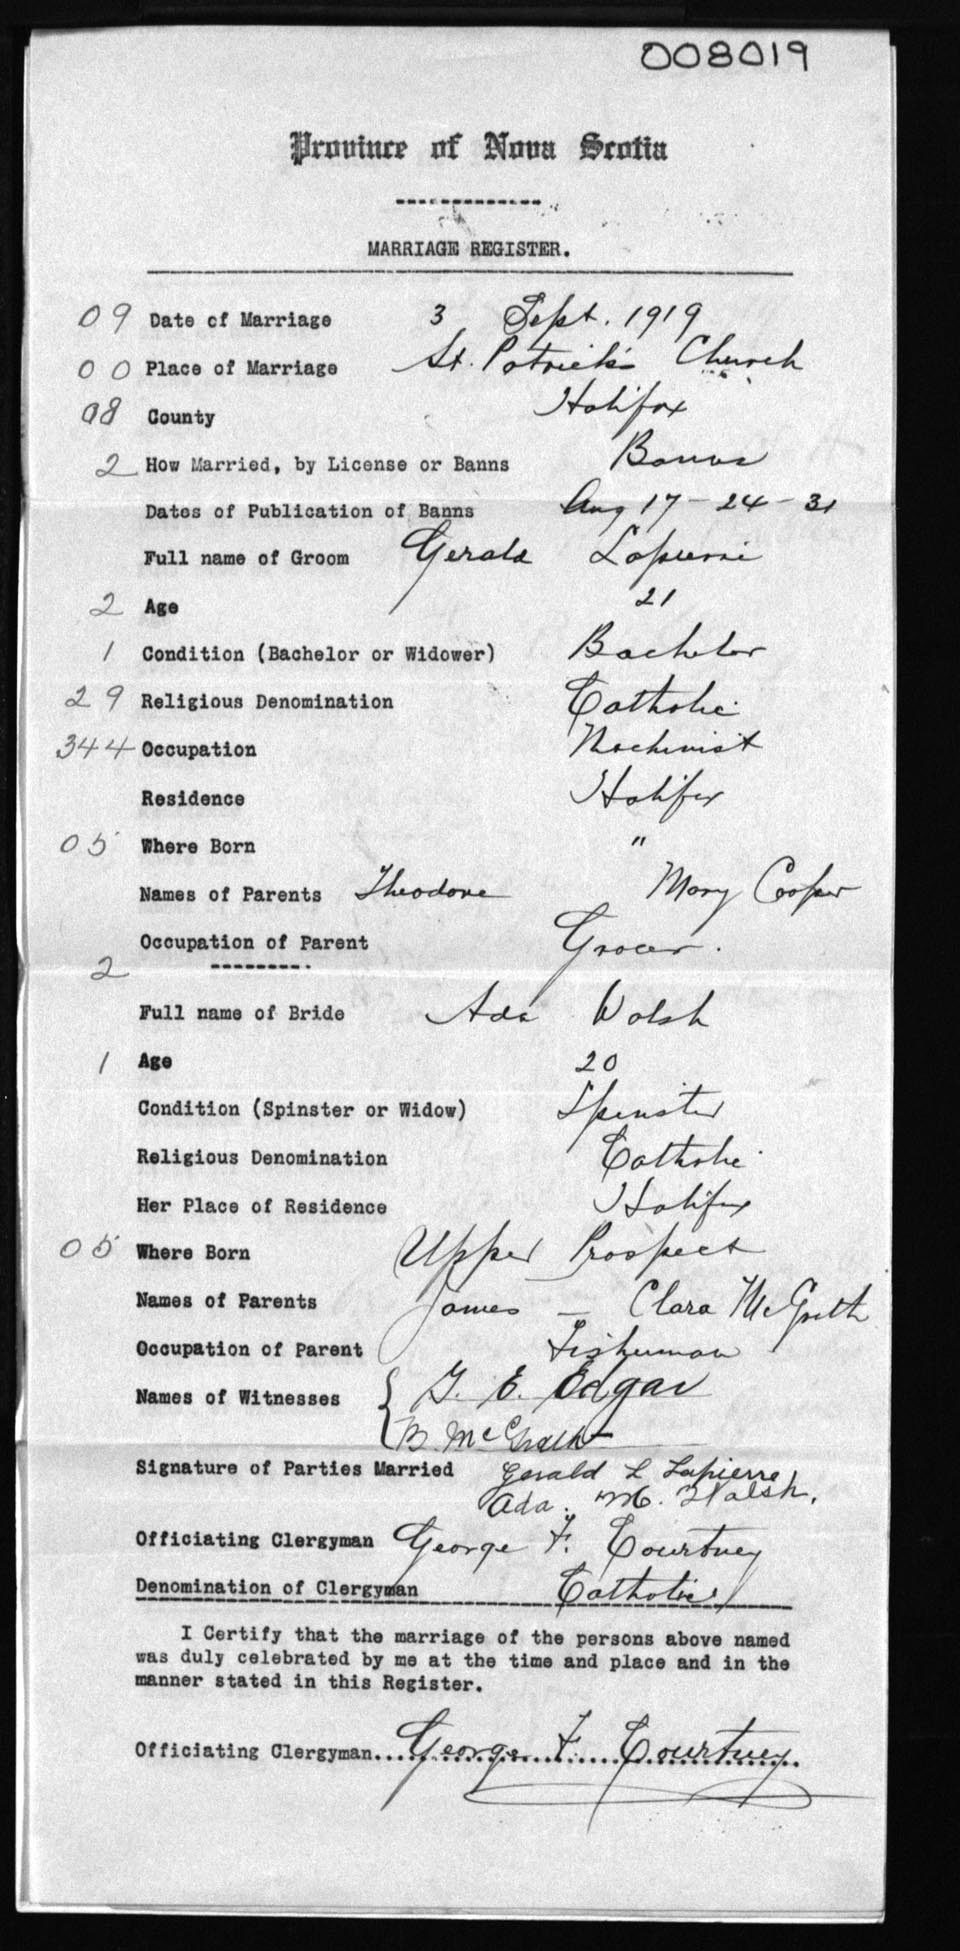 008019
Province of Nova Scotia
MARRIAGE REGISTER.
09 Date of Marriage 3 Sept. 1919
00 Place of Marriage St. Patrick's Church
08 County Halifax
2 How Married, by License or Banns Banns
Dates of Publication of Banns Aug 17 - 24 - 31
Full name of Groom Gerald Lapierre
2 Age 21
1 Condition (Bachelor or Widower) Bachelor
29 Religious Denomination Catholic
344 Occupation Machinist
Residence Halifax
05 Where Born "
Names of Parents Theodore Mary Cooper
Occupation of Parent Grocer.
2
Full name of Bride Ada Walsh
1 Age 20
Condition (Spinster or Widow) Spinster
Religious Denomination Catholic
Her Place of Residence Halifax
05 Where Born Upper Prospect
Names of Parents James - Clara McGrath
Occupation of Parent Fisherman
Names of Witnesses G. E. Edgar
B. McGrath
Signature of Parties Married Gerald L Lapierre
Ada. M. Walsh.
Officiating Clergyman George F. Courtney
Denomination of Clergyman Catholic
I Certify that the marriage of the persons above named
was duly celebrated by me at the time and place and in the
manner stated in this Register.
Officiating Clergyman....George F. Courtney